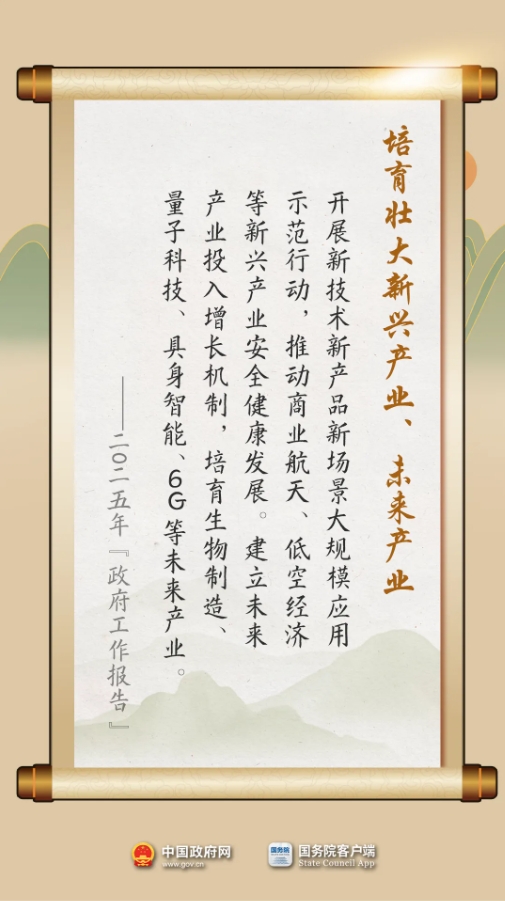 培育壮大新兴产业、未来产业
开展新技术新产品新场景大规模应用
示范行动，推动商业航天、低空经济
等新兴产业安全健康发展。建立未来
产业投入增长机制，培育生物制造、
量子科技、具身智能、6G等未来产业。
——二〇二五年『政府工作报告』
中国政府网
www.gov.cn
国务院
国务院客户端
State Council App